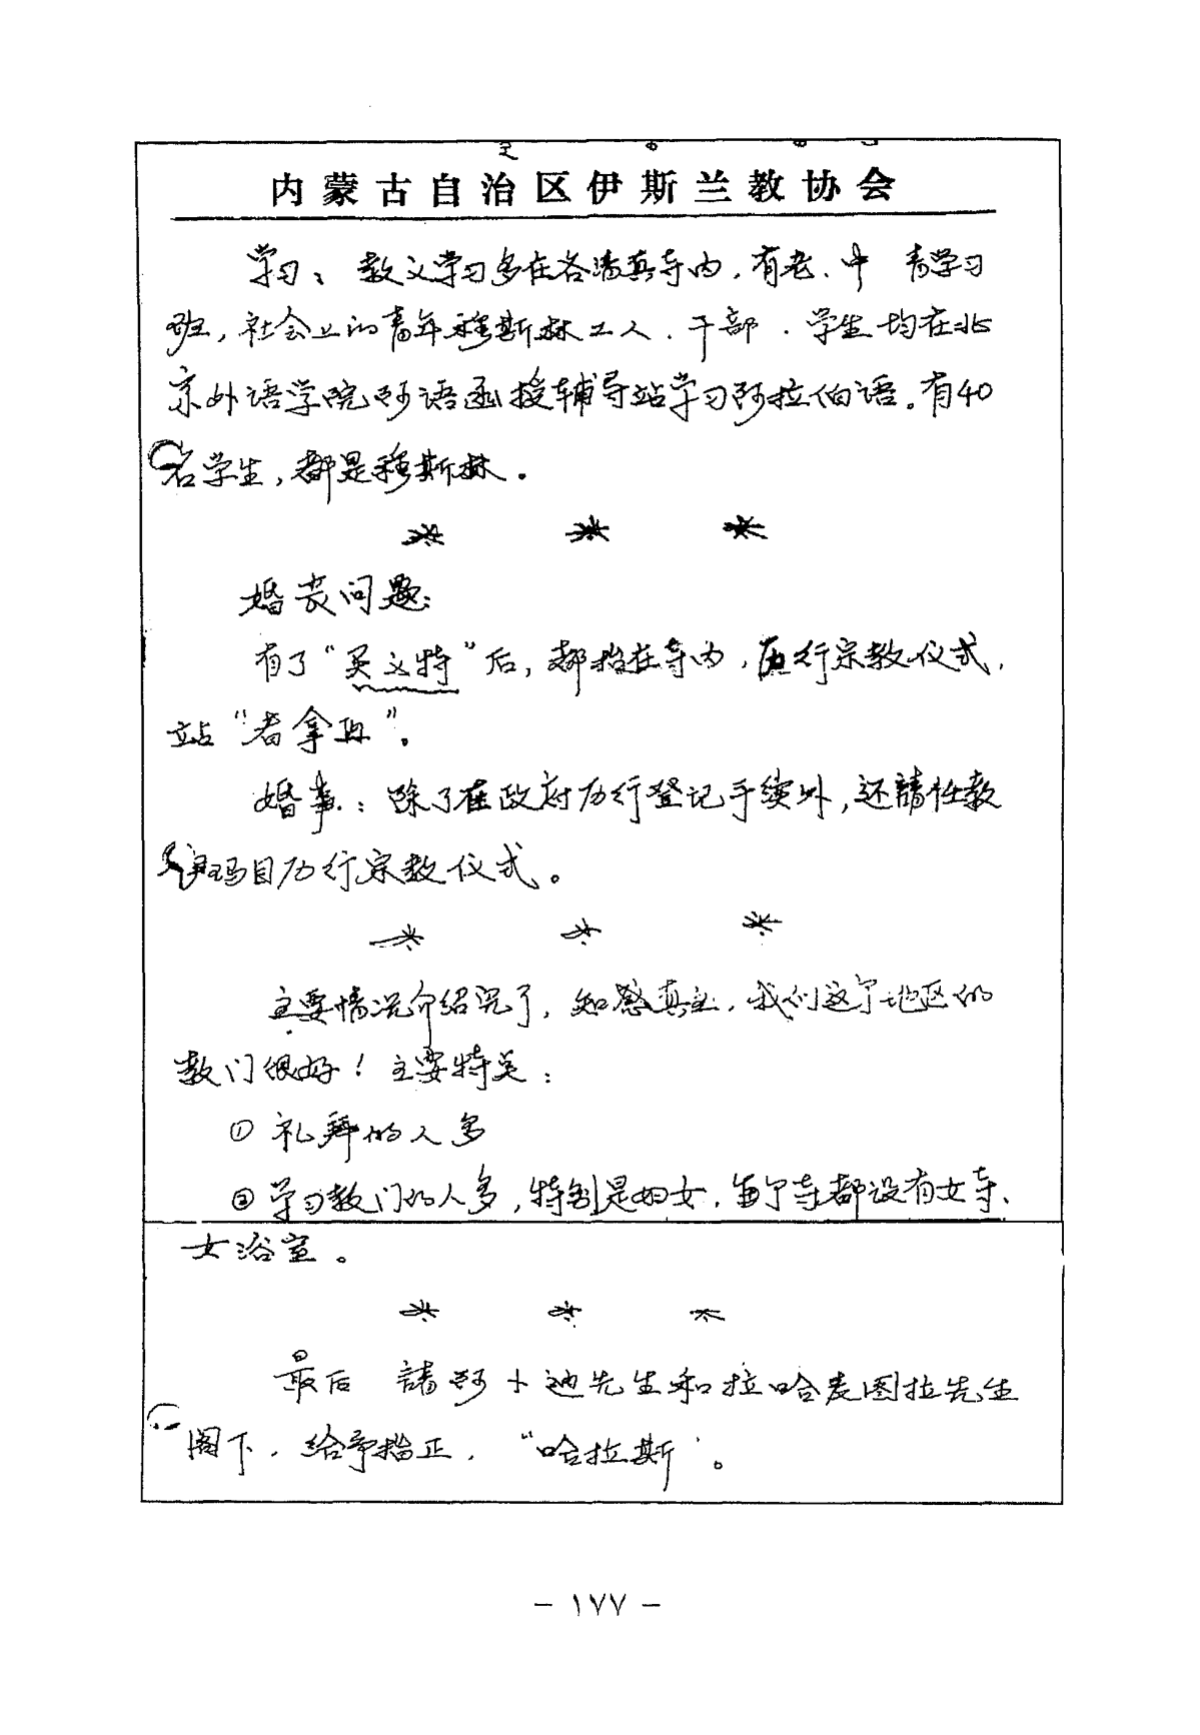 内蒙古自治区伊斯兰教协会
学习：教义学习多在各清真寺内，有老、中 青学习
班，社会上的青年穆斯林工人、干部、学生均在北
京外语学院阿语函授辅导站学习阿拉伯语。有40
名学生，都是穆斯林。
婚丧问题：
有了“买义特”后，都抬在寺内，历行宗教仪式，
站“者拿再”。
婚事：除了在政府历行登记手续外，还請性教
伊玛目历行宗教仪式。
主要情况介绍完了，知感真主，我们这个地区的
教门很好！主要特关：
① 礼拜的人多
② 学习教门的人多，特别是妇女，每个寺都设有女寺、
女浴室。
最后 請阿卜迪先生和拉哈麦图拉先生
阁下，给予指正，“哈拉斯”。
- ١٧٧ -